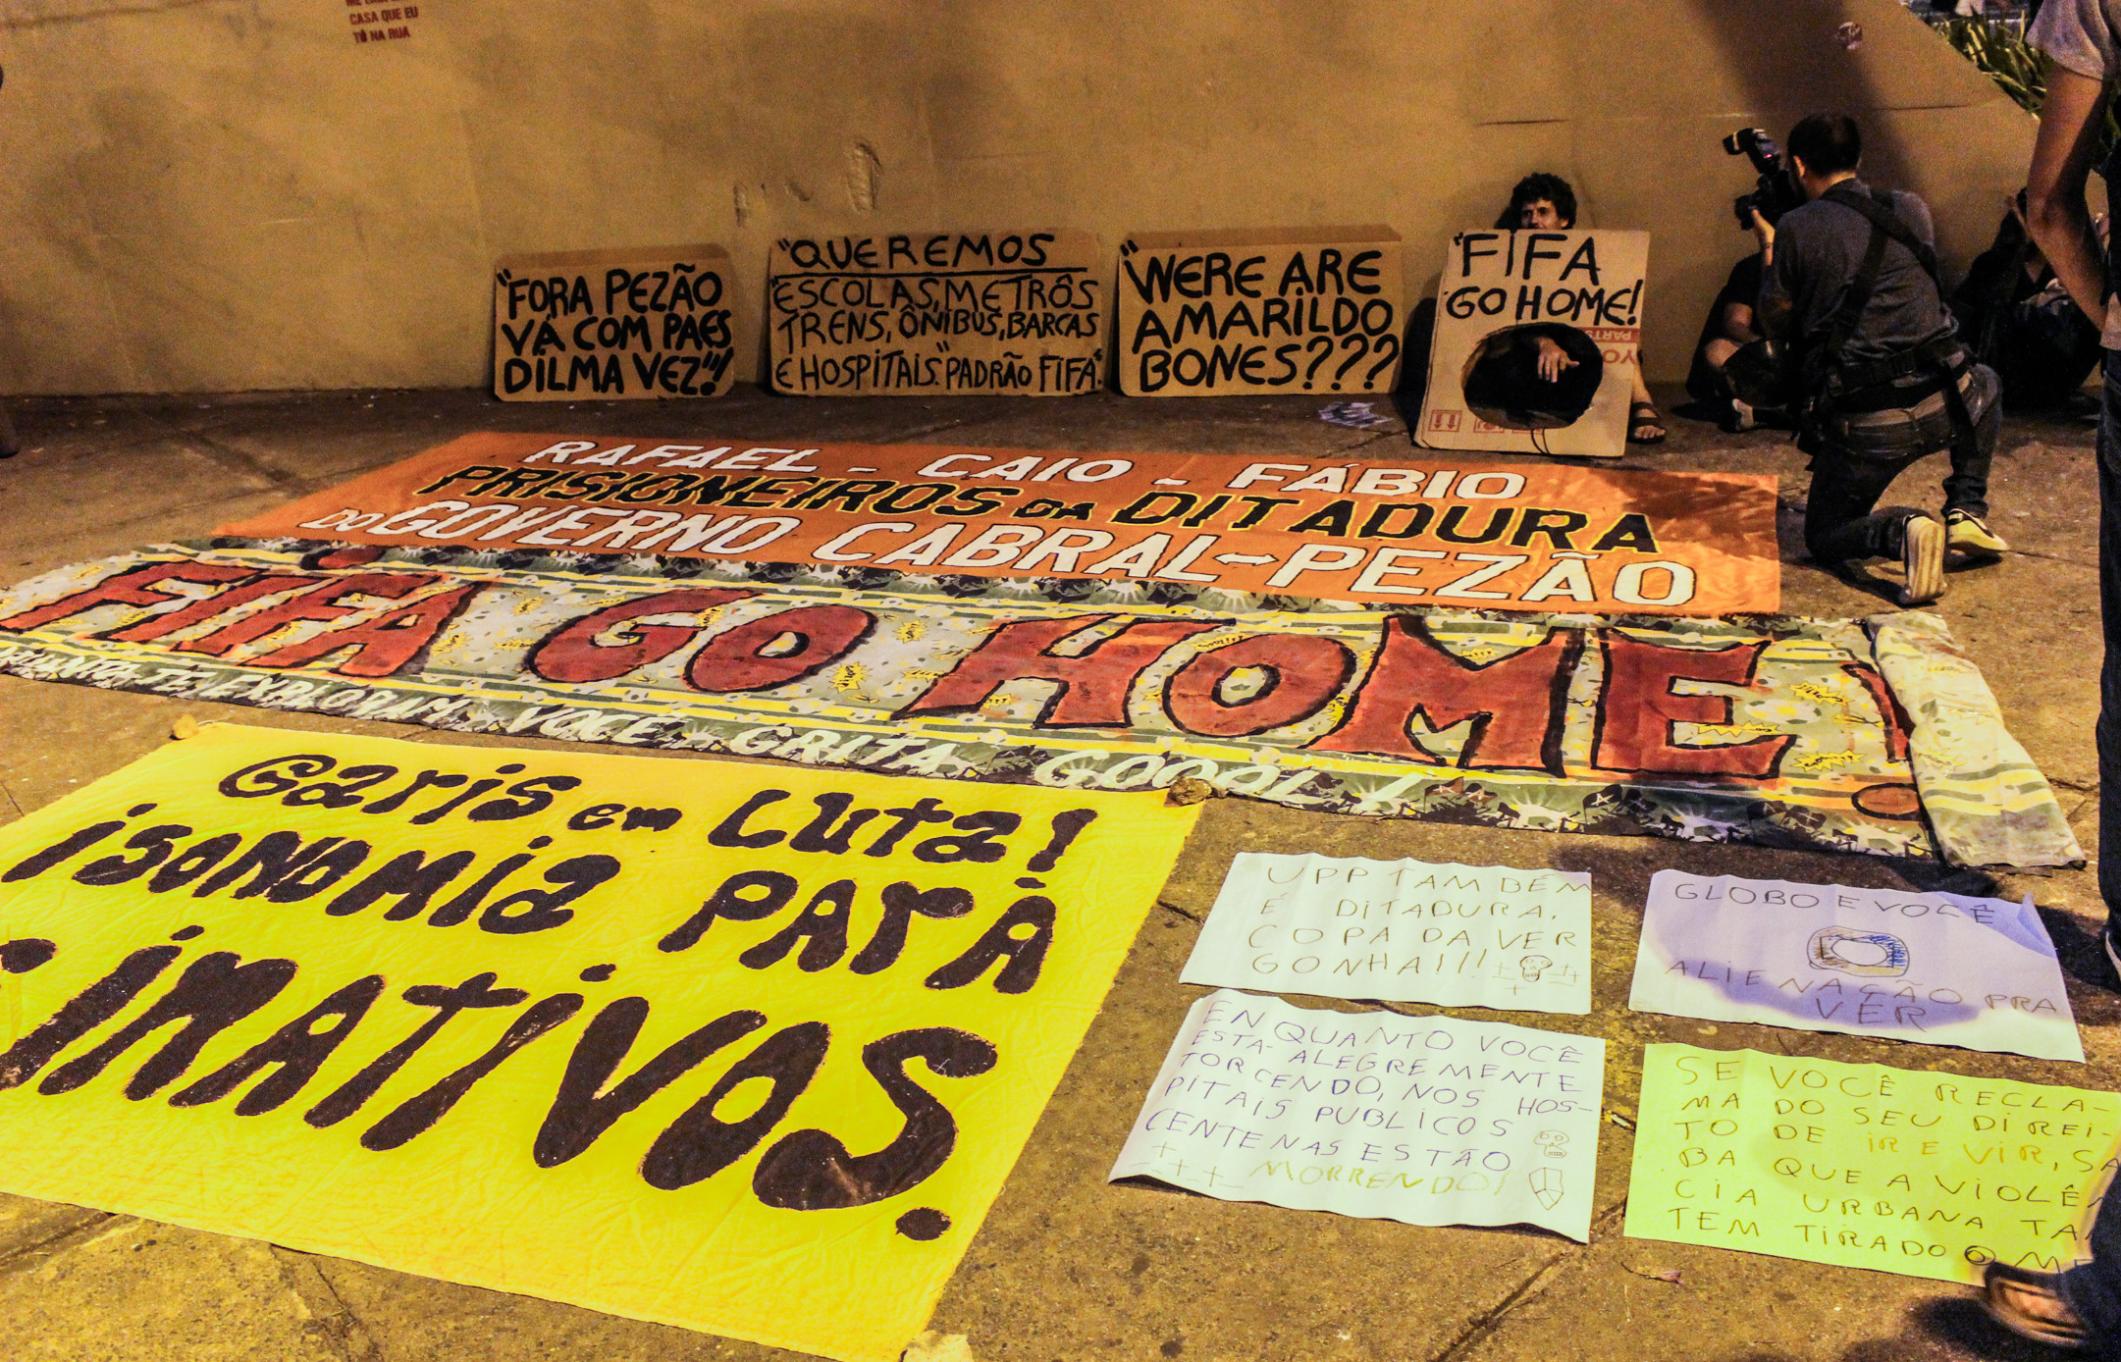 CASA QUE EU
TÔ NA RUA
"FORA PEZÃO
VÁ COM PAES
DILMA VEZ"!
"QUEREMOS
ESCOLAS, METRÔS
TRENS, ÔNIBUS, BARCAS
E HOSPITAIS." PADRÃO FIFA"
"WERE ARE
AMARILDO
BONES???
"FIFA
GO HOME!
RAFAEL - CAIO - FÁBIO
PRISIONEIROS DA DITADURA
DO GOVERNO CABRAL-PEZÃO
FIFA GO HOME!
TE EXPLORAM VOCE GRITA GOOOL!
Garis em Luta!
isonomia PARA
inativos.
UPP TAMBÉM
É DITADURA.
COPA DA VER
GONHA!!!
GLOBO E VOCÊ
ALIENAÇÃO PRA
VER
ENQUANTO VOCÊ
ESTA ALEGREMENTE
TORCENDO, NOS HOS-
PITAIS PUBLICOS
CENTENAS ESTÃO
MORRENDO!
SE VOCÊ RECLA-
MA DO SEU DIREI-
TO DE IR E VIR, SA
BA QUE A VIOLÊN
CIA URBANA TA
TEM TIRADO O